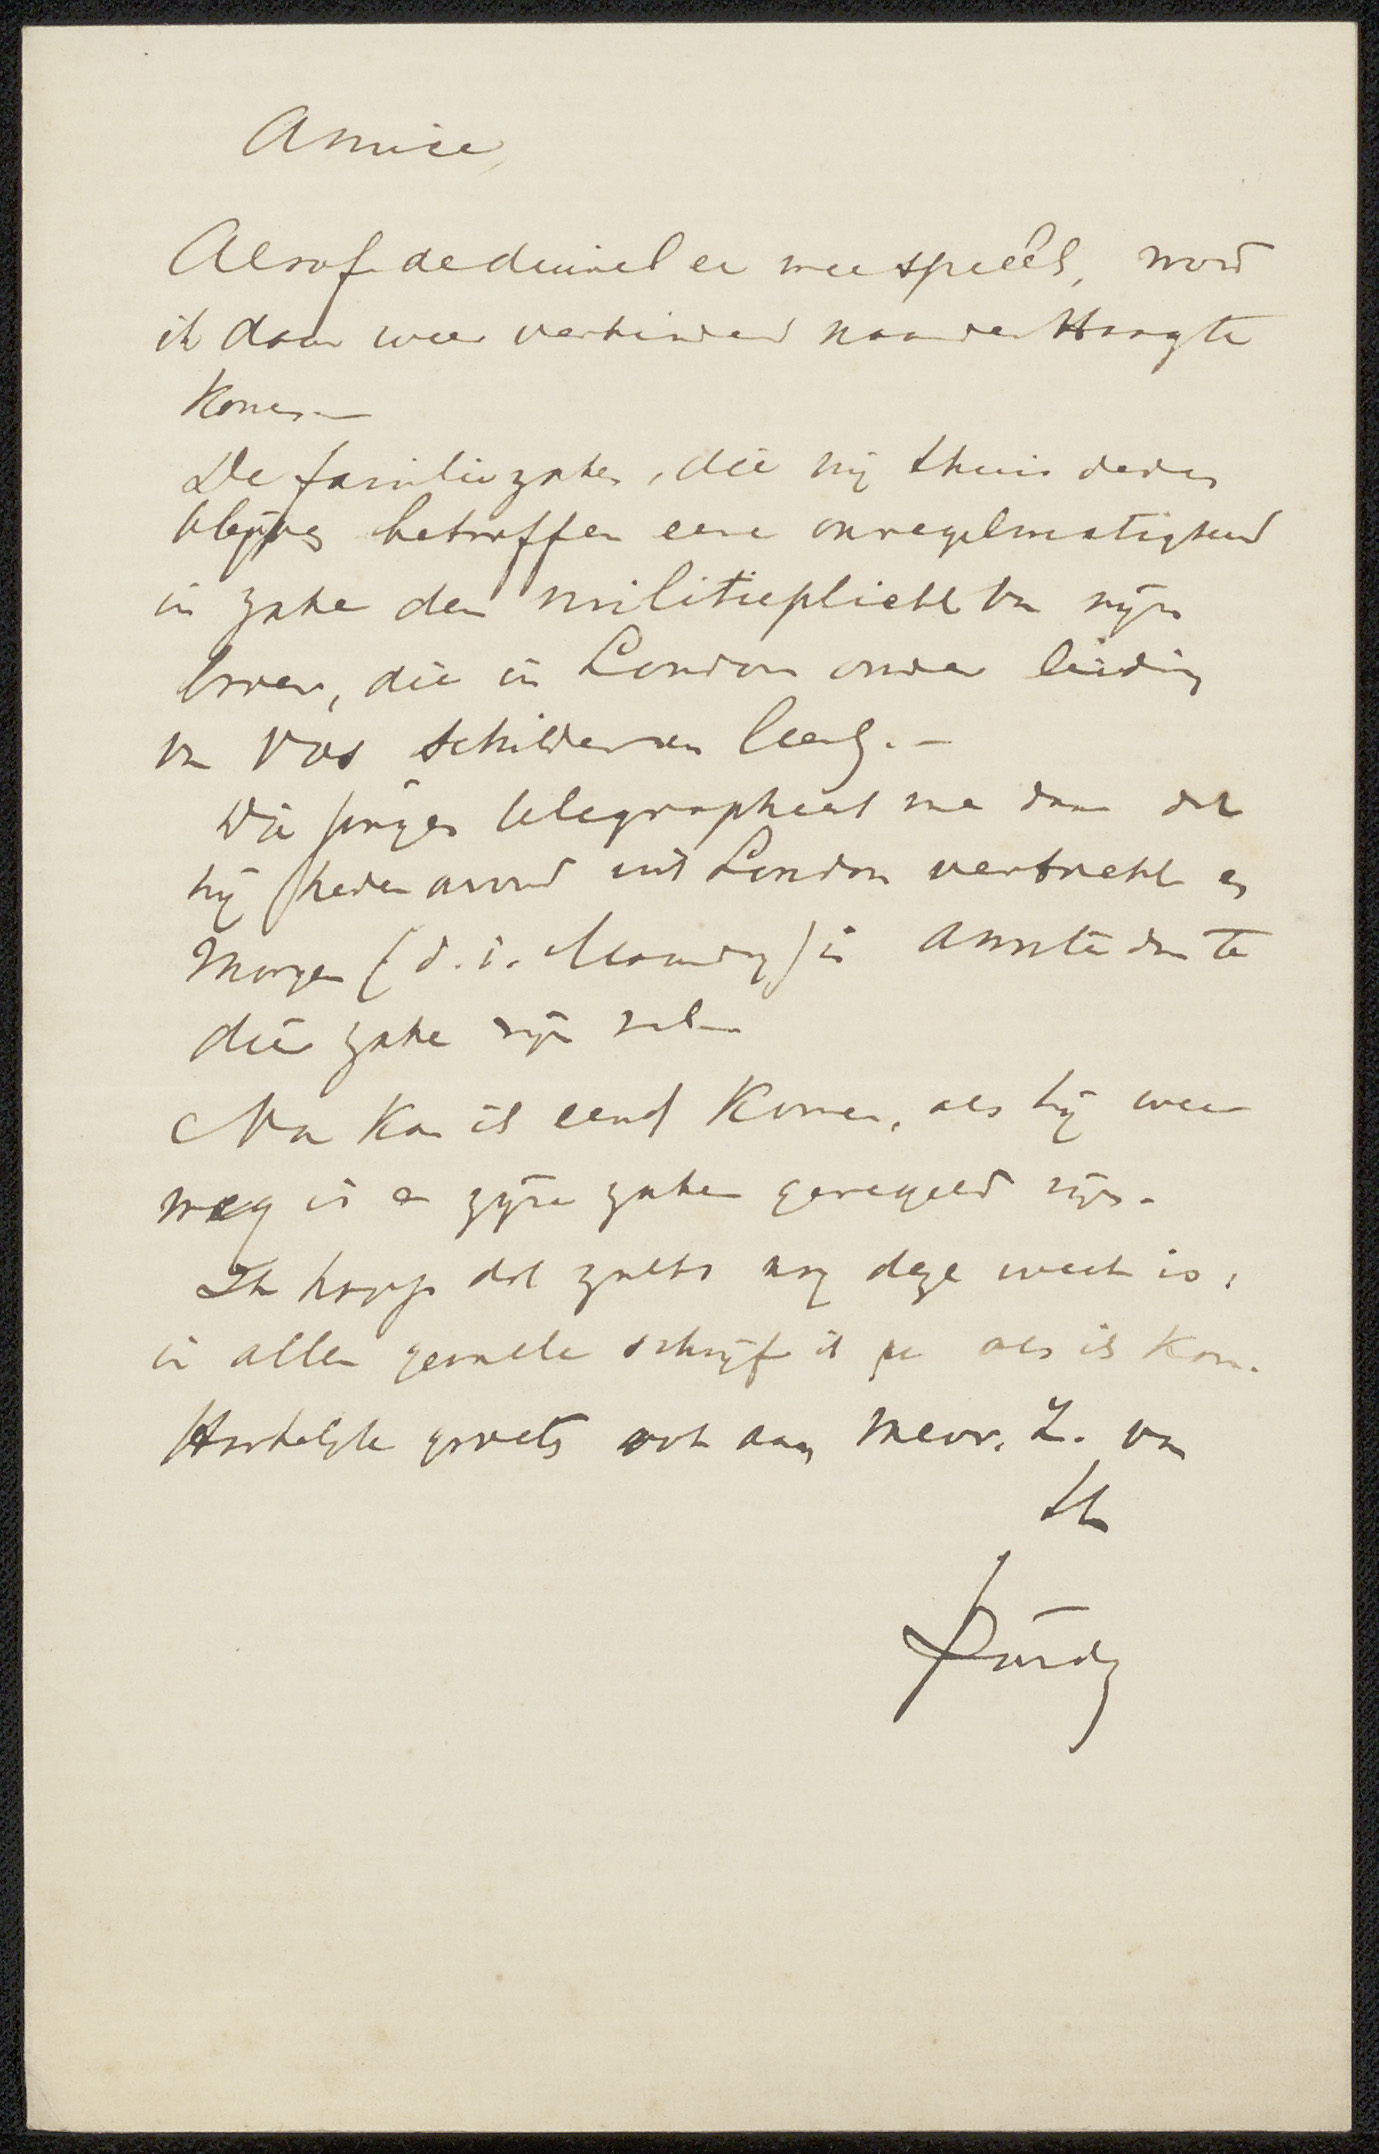 Amice,
Alsof de duivel er mee speelt, word
ik daar weer verhinderd naar den Haag te
komen.—
De familiezaken, die mij thuis deden
blijven betreffen eene onregelmatigheid
in zake den militieplicht van mijn
broer, die in London onder leiding
van Vos schilderen leert.—
Die jongen telegrapheert me daar dat
hij heden avond uit London vertrekt en
morgen (d. i. Maandag) in Amsterdam te
dier zake zijn zal.
Nu kan ik eerst komen, als hij weer
weg is en zijne zaken geregeld zijn.
Ik hoop dat zulks nog deze week is,
in allen gevalle schrijf ik je als ik kom.
Hartelijke groeten ook aan Mevr. Z. van
tt